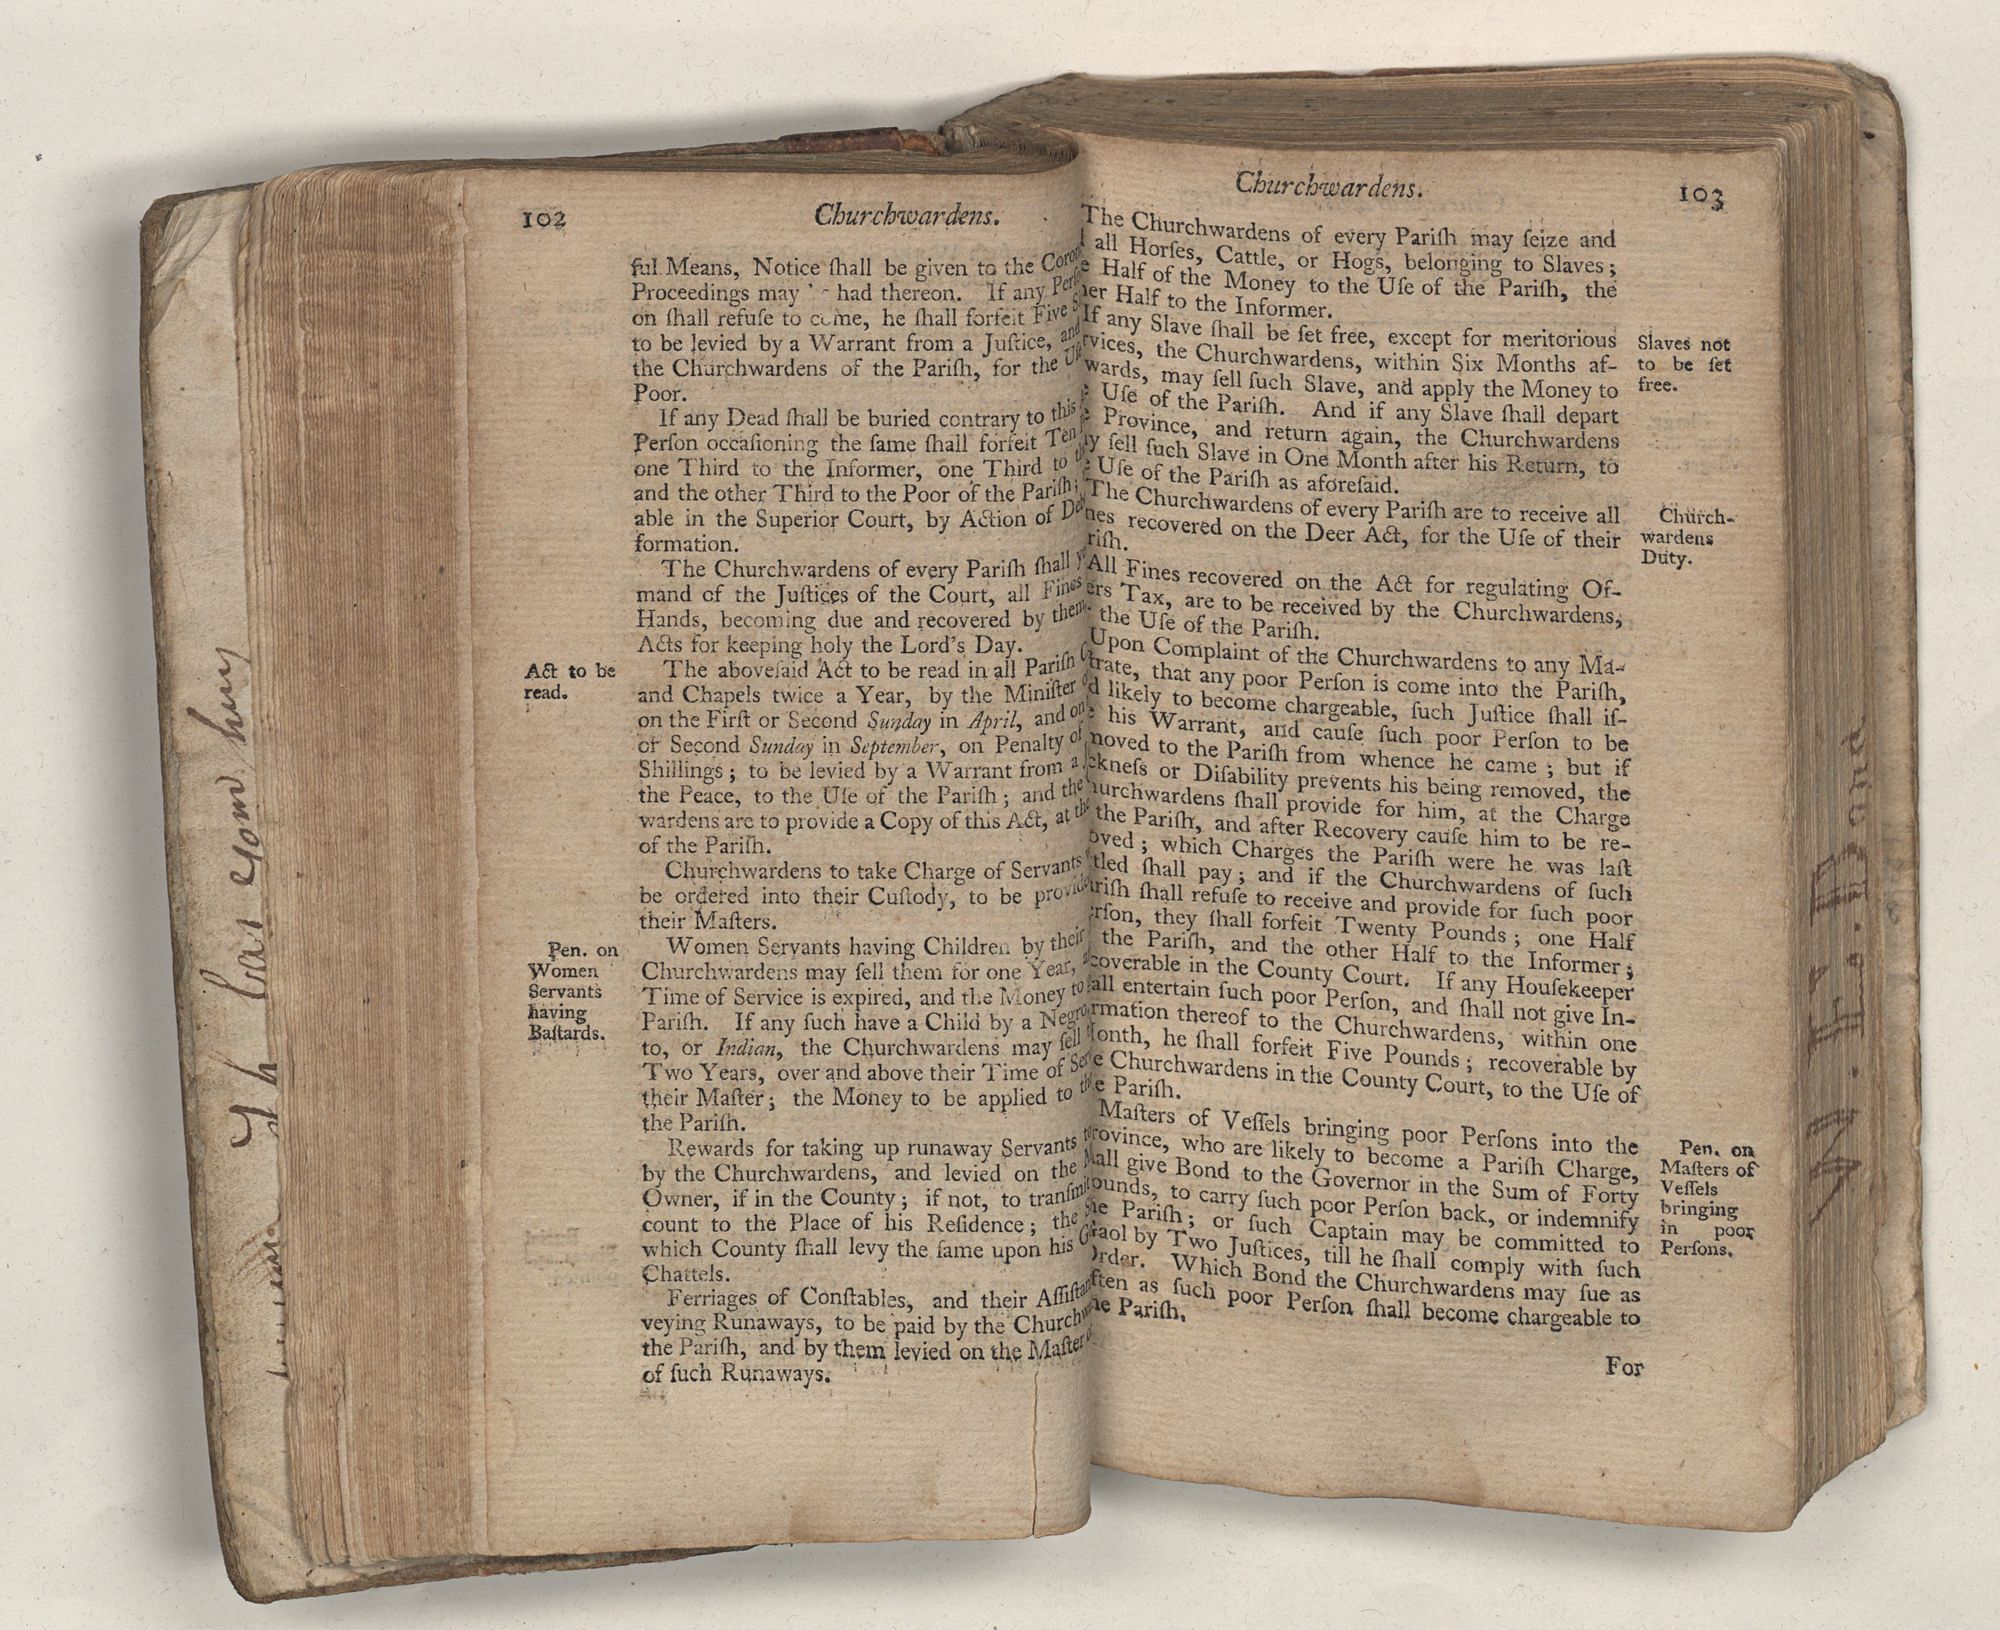 102 Churchwardens.
ful Means, Notice ſhall be given to the
Proceedings may had thereon. If any
on ſhall refuſe to come, he ſhall forfeit Five
to be levied by a Warrant from a Juſtice, and
the Churchwardens of the Pariſh, for the
Poor.
If any Dead ſhall be buried contrary to this
Perſon occaſioning the ſame ſhall forfeit Ten
one Third to the Informer, one Third to
and the other Third to the Poor of the Pariſh;
able in the Superior Court, by Action of
formation.
The Churchwardens of every Pariſh ſhall
mand of the Juſtices of the Court, all Fines
Hands, becoming due and recovered by them
Acts for keeping holy the Lord's Day.
Act to be
read.
The aboveſaid Act to be read in all Pariſh
and Chapels twice a Year, by the Miniſter
on the Firſt or Second Sunday in April, and on
or Second Sunday in September, on Penalty of
Shillings; to be levied by a Warrant from a
the Peace, to the Uſe of the Pariſh; and the
wardens are to provide a Copy of this Act, at
of the Pariſh.
Churchwardens to take Charge of Servants
be ordered into their Cuſtody, to be
their Maſters.
Pen. on
Women
Servants
having
Baſtards.
Women Servants having Children by their
Churchwardens may ſell them for one Year,
Time of Service is expired, and the Money to
Pariſh. If any ſuch have a Child by a
to, or Indian, the Churchwardens may ſell
Two Years, over and above their Time of
their Maſter; the Money to be applied to
the Pariſh.
Rewards for taking up runaway Servants
by the Churchwardens, and levied on the
Owner, if in the County; if not, to
count to the Place of his Reſidence; the
which County ſhall levy the ſame upon his
Chattels.
Ferriages of Conſtables, and their
veying Runaways, to be paid by the
the Pariſh, and by them levied on the Maſter
of ſuch Runaways.
Churchwardens. 103
The Churchwardens of every Pariſh may ſeize and
all Horſes, Cattle, or Hogs, belonging to Slaves;
Half of the Money to the Uſe of the Pariſh, the
Half to the Informer.
If any Slave ſhall be ſet free, except for meritorious
the Churchwardens, within Six Months af-
wards, may ſell ſuch Slave, and apply the Money to
Uſe of the Pariſh. And if any Slave ſhall depart
Province, and return again, the Churchwardens
ſell ſuch Slave in One Month after his Return, to
Uſe of the Pariſh as aforeſaid.
Slaves not
to be ſet
free.
The Churchwardens of every Pariſh are to receive all
recovered on the Deer Act, for the Uſe of their
riſh.
Church-
wardens
Duty.
All Fines recovered on the Act for regulating Of-
Tax, are to be received by the Churchwardens,
the Uſe of the Pariſh.
Upon Complaint of the Churchwardens to any Ma-
trate, that any poor Perſon is come into the Pariſh,
likely to become chargeable, ſuch Juſtice ſhall iſ-
his Warrant, and cauſe ſuch poor Perſon to be
moved to the Pariſh from whence he came; but if
ckneſs or Diſability prevents his being removed, the
hurchwardens ſhall provide for him, at the Charge
the Pariſh, and after Recovery cauſe him to be re-
oved; which Charges the Pariſh were he was laſt
tled ſhall pay; and if the Churchwardens of ſuch
riſh ſhall refuſe to receive and provide for ſuch poor
erſon, they ſhall forfeit Twenty Pounds; one Half
the Pariſh, and the other Half to the Informer;
coverable in the County Court. If any Houſekeeper
all entertain ſuch poor Perſon, and ſhall not give In-
rmation thereof to the Churchwardens, within one
onth, he ſhall forfeit Five Pounds; recoverable by
Churchwardens in the County Court, to the Uſe of
Pariſh.
Maſters of Veſſels bringing poor Perſons into the
rovince, who are likely to become a Pariſh Charge,
all give Bond to the Governor in the Sum of Forty
ounds, to carry ſuch poor Perſon back, or indemnify
Pariſh; or ſuch Captain may be committed to
Gaol by Two Juſtices, till he ſhall comply with ſuch
rder. Which Bond the Churchwardens may ſue as
ften as ſuch poor Perſon ſhall become chargeable to
he Pariſh.
Pen. on
Maſters of
Veſſels
bringing
in poor
Perſons.
For